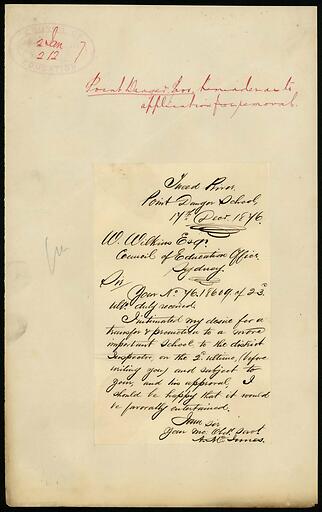 2 Jan 7
212
Point Danger
application for removal.
Tweed River
Point Danger School,
17th Decr 1876.
W. Wilkins Esqr
Council of Education Office
Sydney.
Sir
Your No 76.18609 of 23d
ulto duly received.
I intimated my desire for a
transfer & promotion to a more
important school to the district
Inspector, on the 2d ultimo, (before
writing you) and subject to
your, and his approval, I
should be happy that it would
be favorably entertained.
I am Sir
Your mo. Obdt. Servt
Innes.